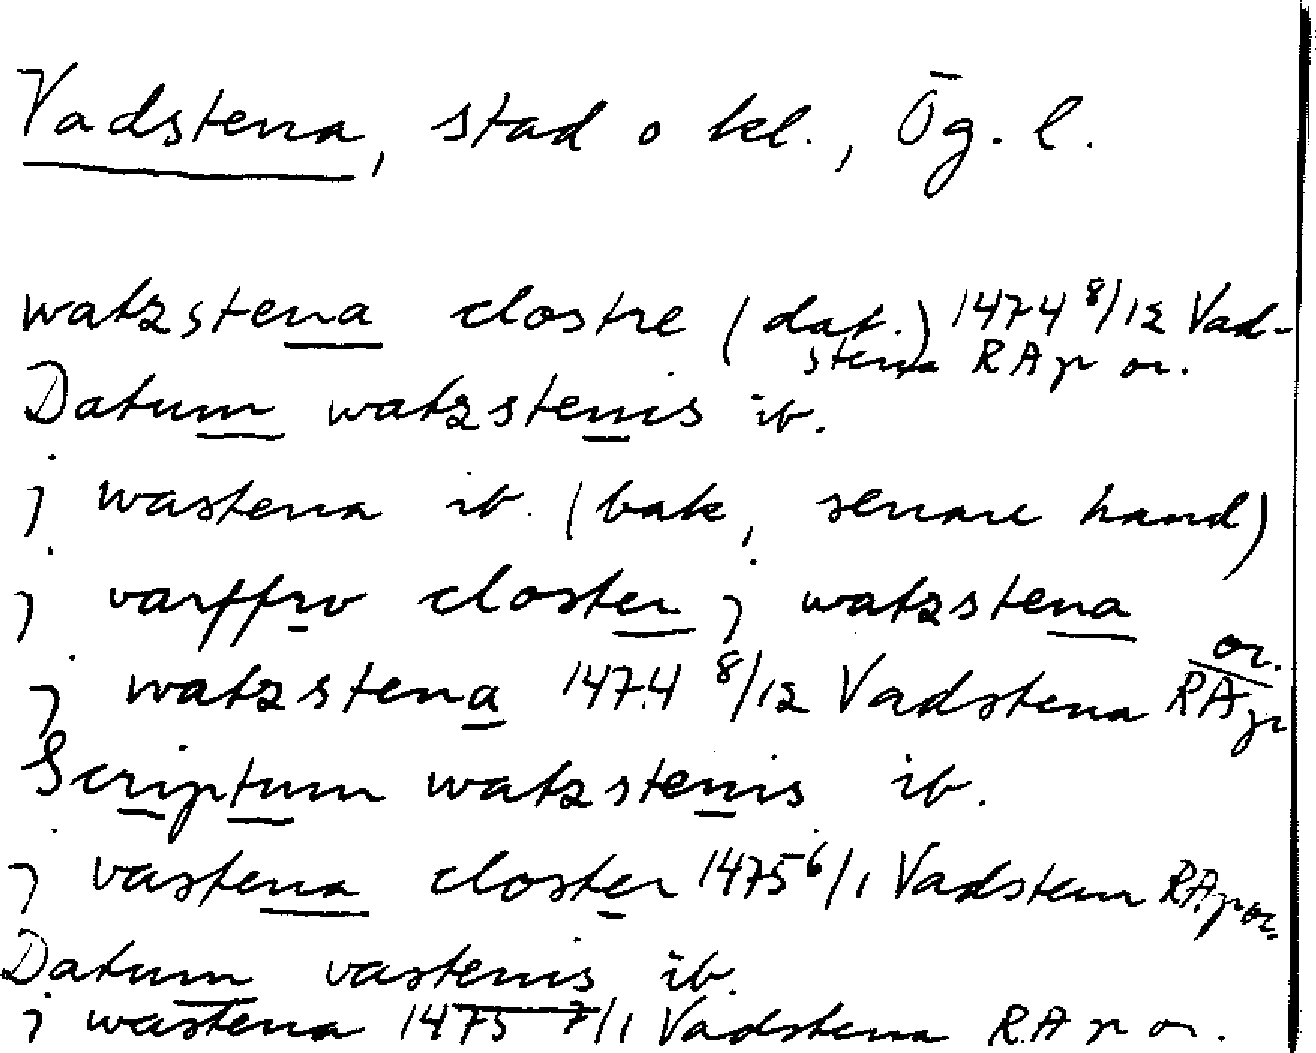 Vadstena, stad o kl., Ög. l.
watzstena clostre (dat.) 1474 8/12 Vad-
stena RA p or.
Datum watzstenis ib.
j wastena ib. (bak, senare hand)
j varffrv closter j watzstena
j watzstena 1474 8/12 Vadstena RA p or.
Scriptum watzstenis ib.
j vastena closter 1475 6/1 Vadstena RA p or.
Datum vastenis ib.
j wastena 1475 7/1 Vadstena RA p or.